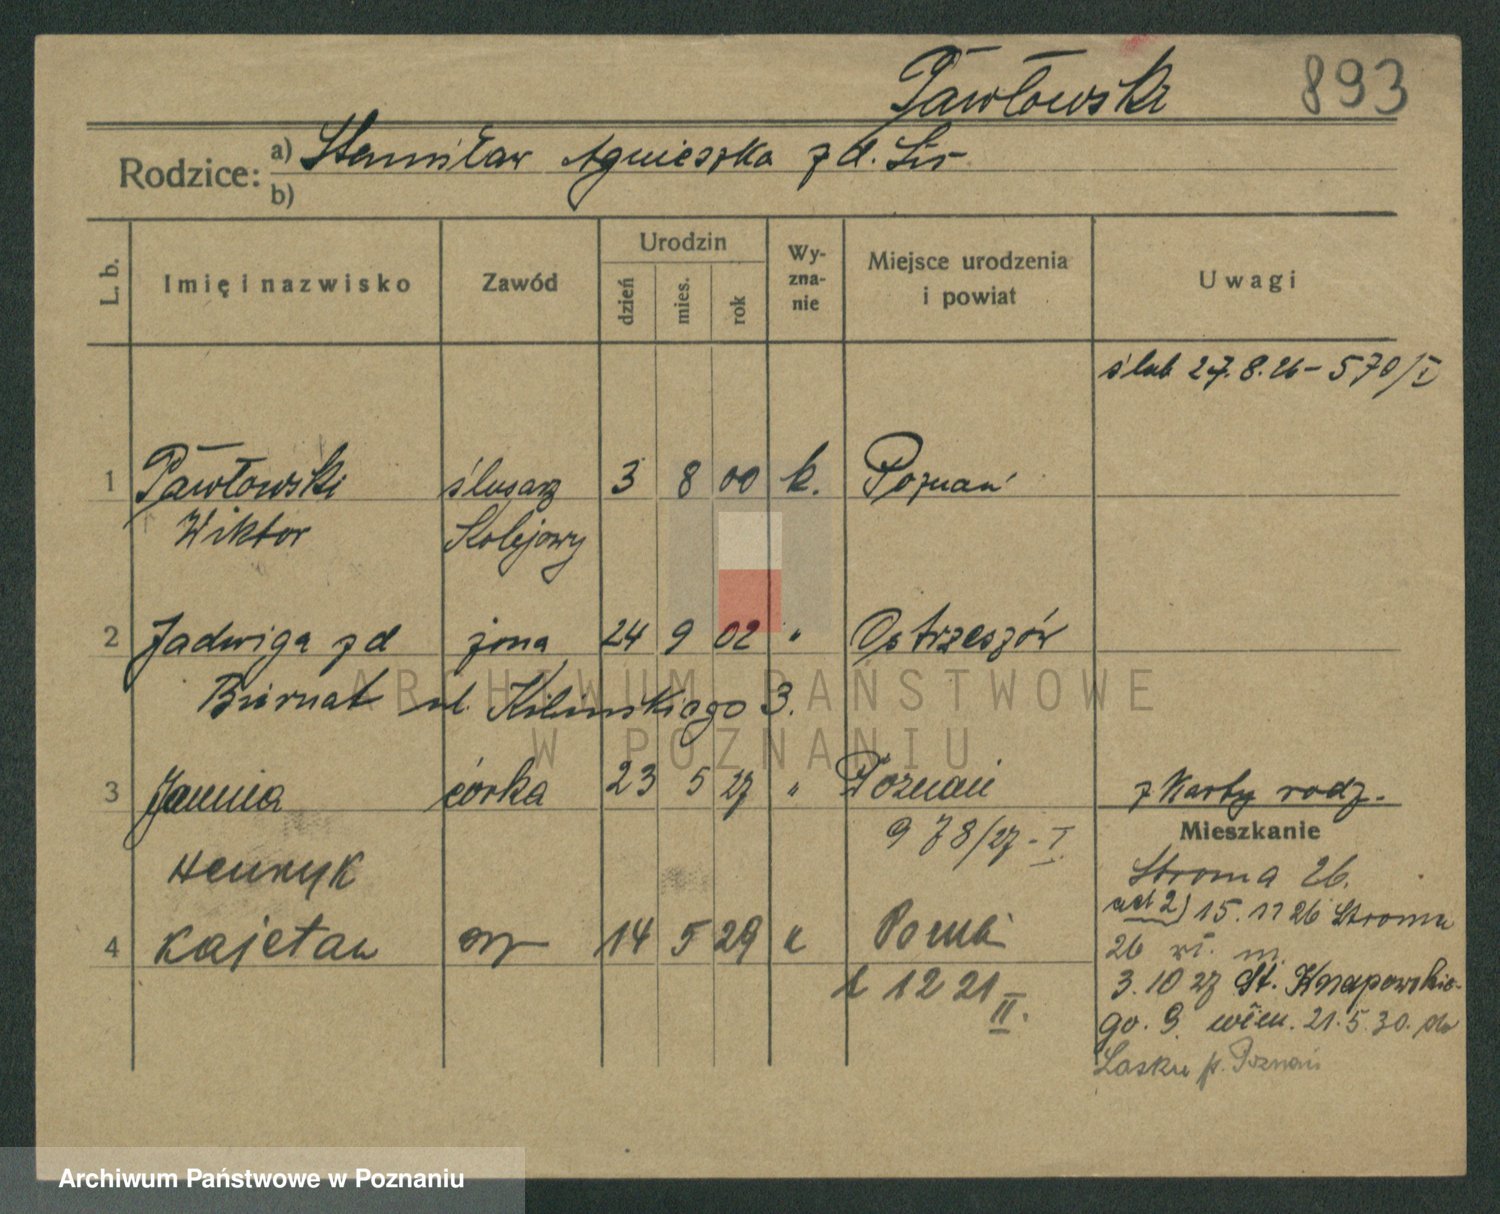 Pawłowski 893
Rodzice: a) Stanisław Agnieszka z d. Lis
b)
L. b. Imię i nazwisko Zawód Urodzin dzień mies. rok Wy-zna-nie Miejsce urodzenia i powiat Uwagi
ślub 27.8.26 – 570/I
1 Pawłowski ślusarz 3 8 00 k. Poznań
Wiktor Kolejowy
2 Jadwiga z d żona 24 9 02 " Ostrzeszów
Biernat ul. Kilińskiego 3.
ARCHIWUM PAŃSTWOWE
W POZNANIU
3 Janina córka 23 5 27 " Poznań z Karty rodz.
978/27 - I
Mieszkanie
Henryk
Stroma 26.
ad 2) 15. 11 26 Stroma
4 Kajetan 14 5 29 " Poznań
26 m.
1221 II.
3. 10 27 St. Knapowskie-
go. 9. wiem. 21.5.30. do
p. Poznań
Archiwum Państwowe w Poznaniu